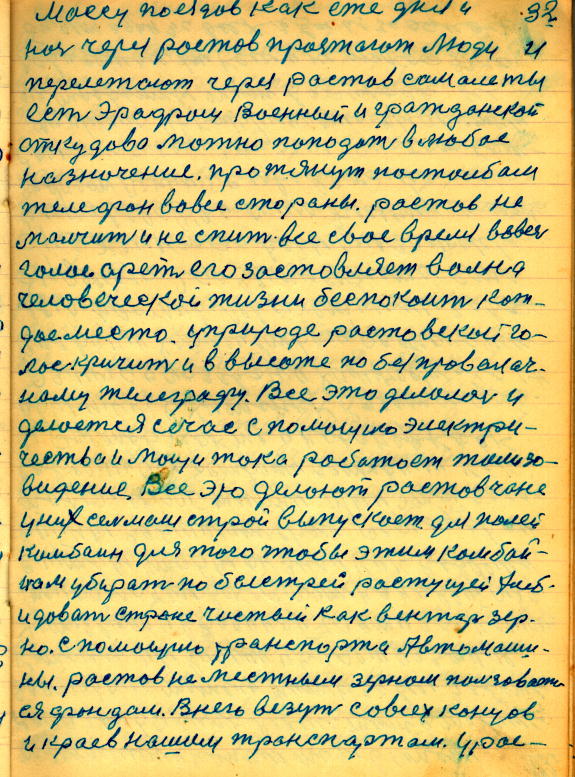 Массу поездов как сте дня и 32
ноч через ростов проезжают люди и
перелетают через ростов самалеты
есть Эрадром Военный и гражданской
откудова можно пападат в любое
назночение. протянут постолбам
телефон вовсе стораны. ростов не
молчит и не спит. все свое время вовсю
голос орет, его застовляет волна
человеческой жизни беспокоит кож-
дое место. уприроде ростовской го-
лос кричит и в высоте по без провалач-
ному телеграфу. Все это делолос и
делоется сечас с помощию электри-
чества и мощи тока работоет телизо-
видение. Все это делоют ростовчане
у них селмаш строй выпускоет для полей
комбаин для того чтобы этим комбай-
нам убират по быстрей растущей хлеб-
и доват стране чистый как вентар зер-
но. с помощию транспорта Автомаши-
ны. ростов не местным зерном ползовает
ся фондам. Внего везут совсех концов
и краев нашим транспортам. у рос-